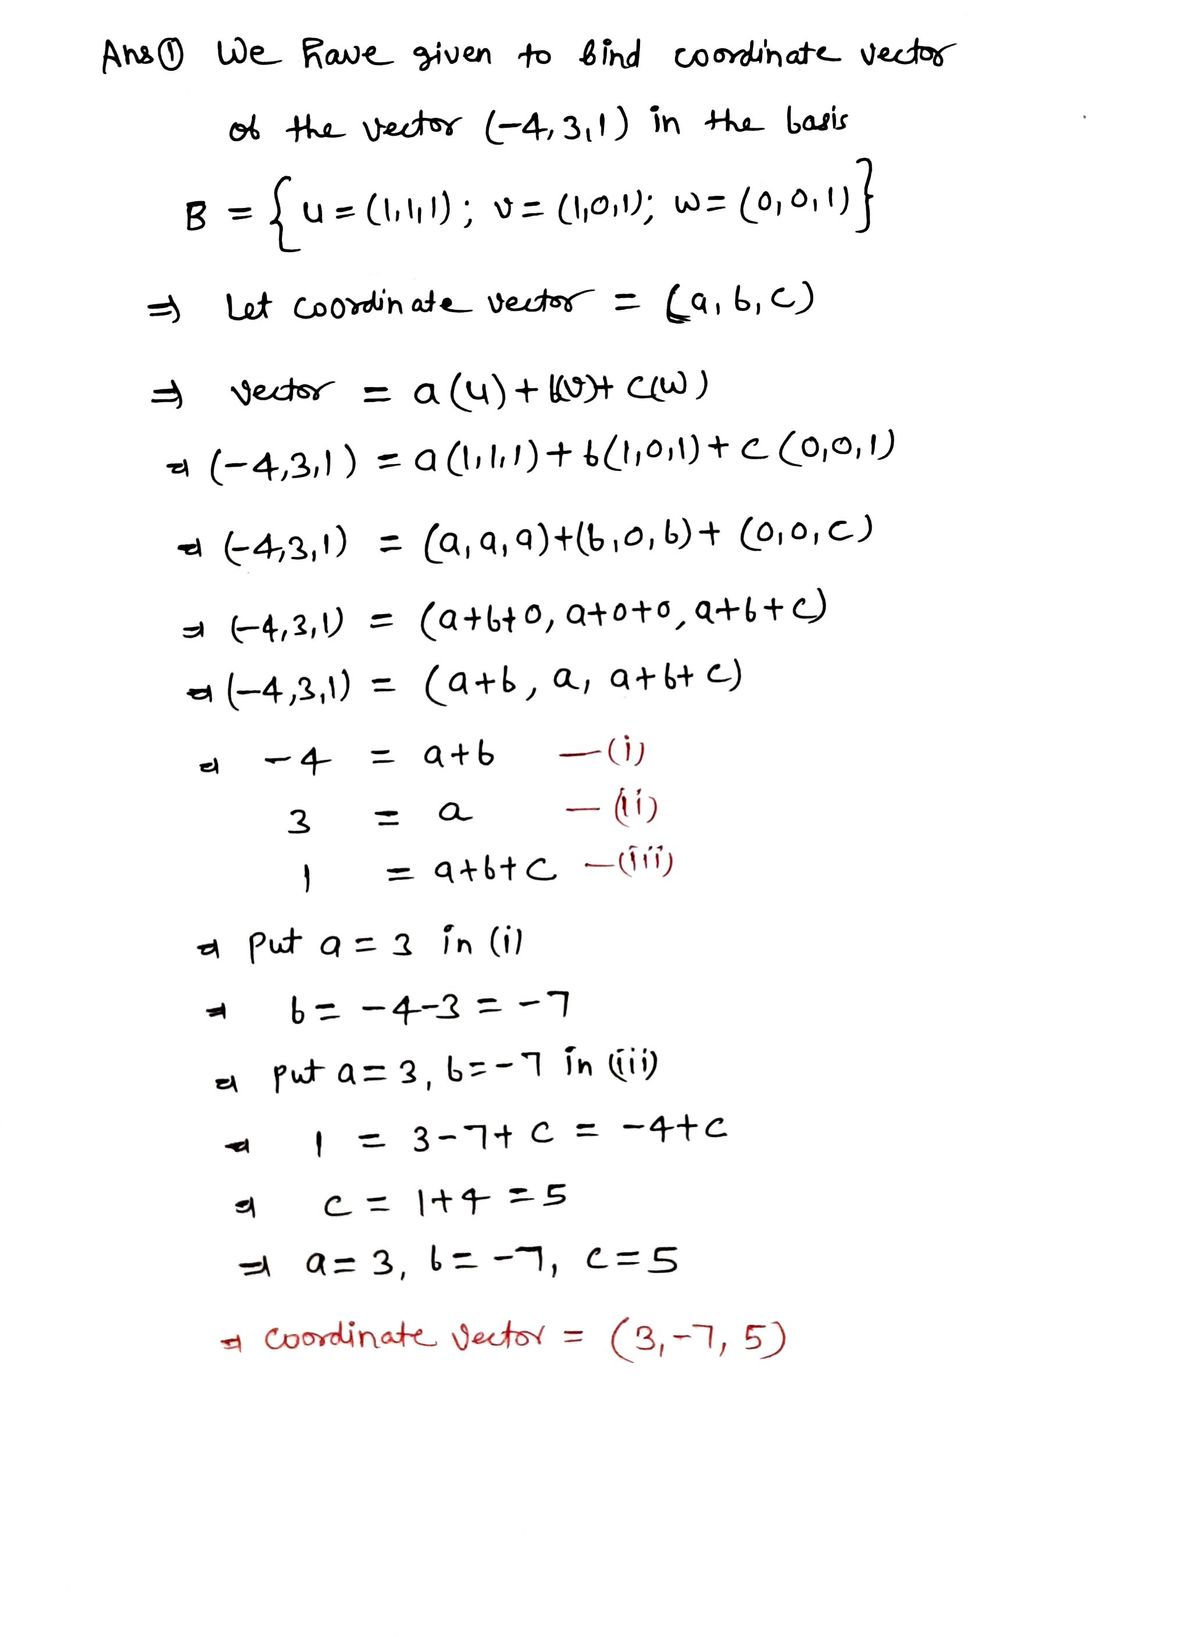 Ans ① We have given to find coordinate vector
of the vector (-4,3,1) in the basis
B = {u = (1,1,1); v = (1,0,1); w = (0,0,1)}
⇒ Let coordinate vector = (a, b, c)
⇒ vector = a(u) + b(v) + c(w)
⇒ (-4,3,1) = a(1,1,1) + b(1,0,1) + c(0,0,1)
⇒ (-4,3,1) = (a, a, a) + (b, 0, b) + (0, 0, c)
⇒ (-4,3,1) = (a+b+0, a+0+0, a+b+c)
⇒ (-4,3,1) = (a+b, a, a+b+c)
⇒ -4 = a+b —(i)
3 = a —(ii)
1 = a+b+c —(iii)
⇒ put a = 3 in (i)
⇒ b = -4-3 = -7
⇒ put a = 3, b = -7 in (iii)
⇒ 1 = 3-7+c = -4+c
⇒ c = 1+4 = 5
⇒ a = 3, b = -7, c = 5
⇒ coordinate vector = (3, -7, 5)